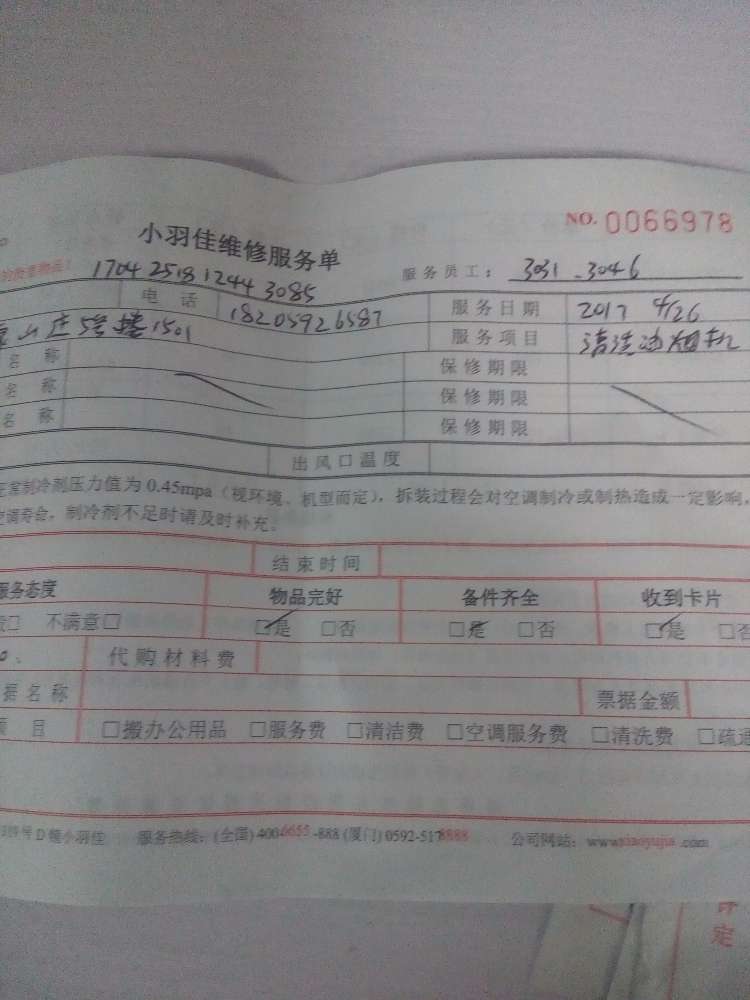 NO. 0066978
小羽佳维修服务单
1704 2518 1244 3085
服务员工： 3031 - 3046
电话 18205926587
服务日期 2017 4/26
山庄 1501
服务项目 清洗油烟机
名称 保修期限
名称 保修期限
名称 保修期限
出风口温度
正常制冷剂压力值为 0.45mpa（视环境、机型而定），拆装过程会对空调制冷或制热造成一定影响，
空调寿命，制冷剂不足时请及时补充。
结束时间
服务态度 物品完好 备件齐全 收到卡片
不满意□ □是 □否 □是 □否 □是 □否
代购材料费
据名称 票据金额
项目 □搬办公用品 □服务费 □清洁费 □空调服务费 □清洗费 □疏通
号D幢小羽佳 服务热线：(全国) 400-6655-888 (厦门) 0592-5178888 公司网站：www.xiaoyujia.com
定